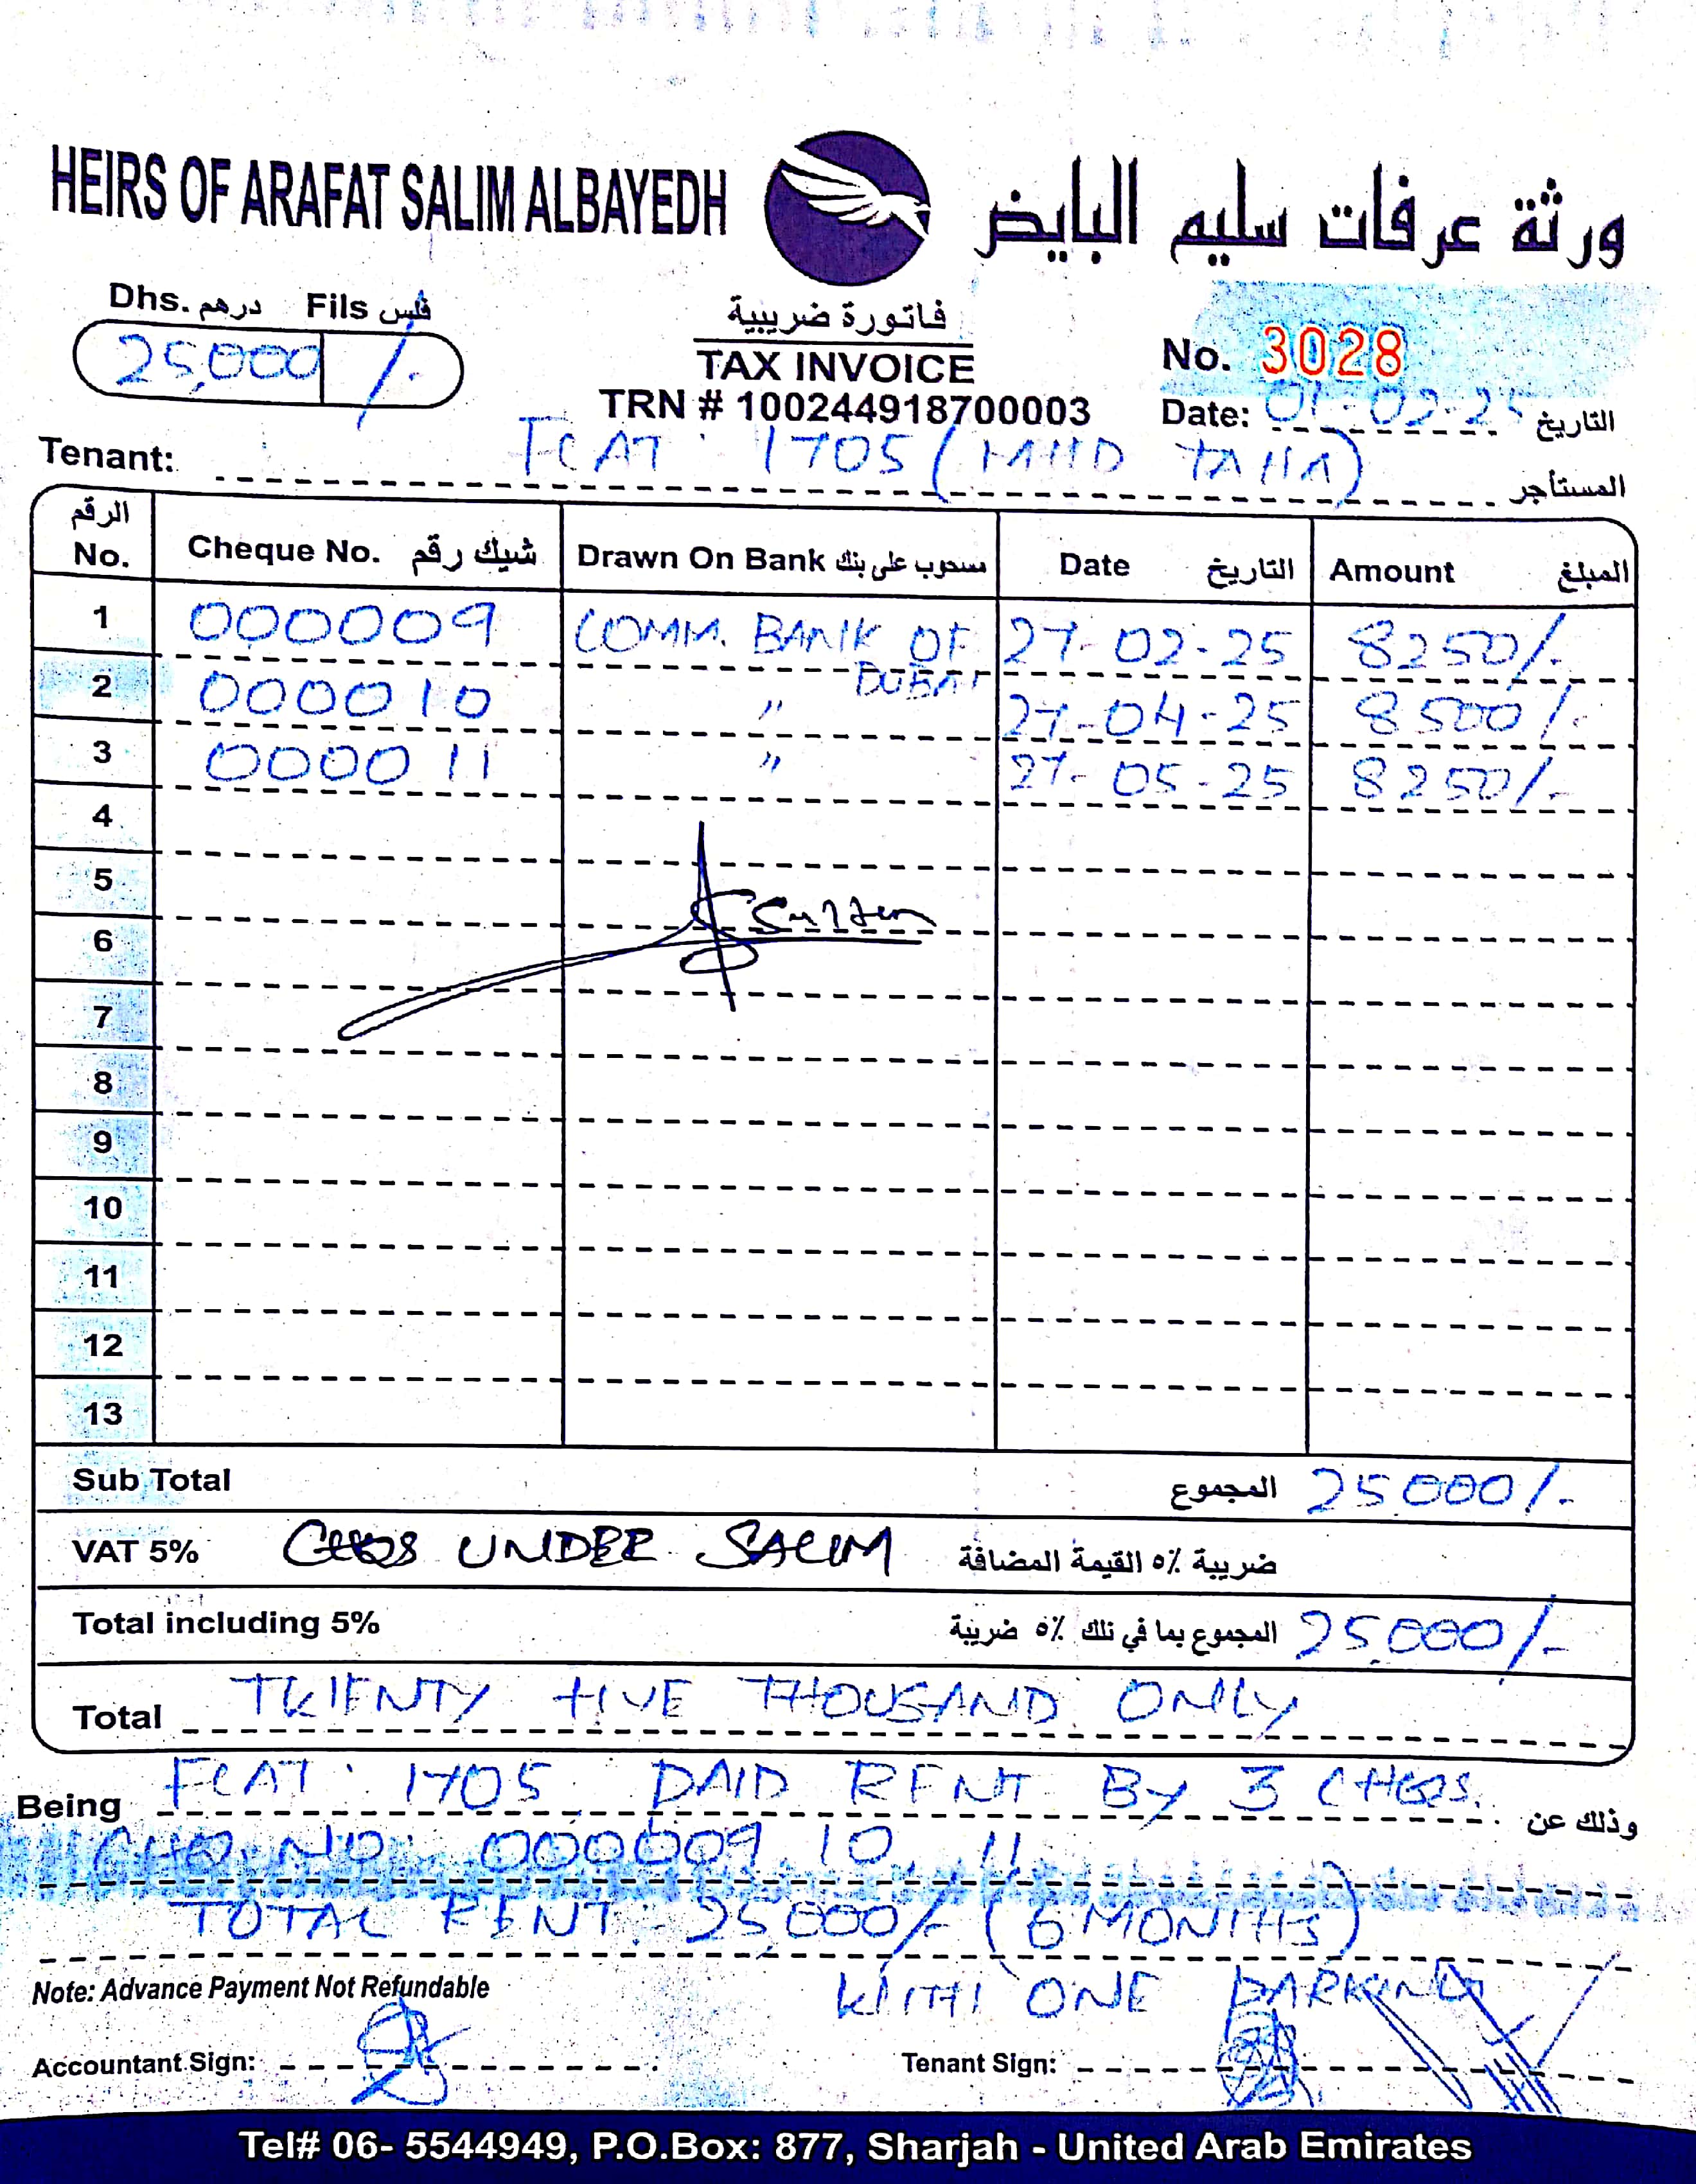 HEIRS OF ARAFAT SALIM ALBAYEDH ورثة عرفات سليم البايض
Dhs. درهم Fils فلس
25,000 /-
فاتورة ضريبية
TAX INVOICE
TRN # 100244918700003
No. 3028
Date: 01-02-25 التاريخ
Tenant: FLAT: 1705 (MHD TAHA) المستأجر
الرقم No. Cheque No. شيك رقم Drawn On Bank مسحوب على بنك Date التاريخ Amount المبلغ
1 000009 COMM. BANK OF DUBAI 27-02-25 8250/-
2 000010 " 27-04-25 8500/-
3 000011 " 27-05-25 8250/-
4
5
6
7
8
9
10
11
12
13
Sub Total المجموع 25000/-
VAT 5% CHQS UNDER SALIM ضريبة ٥٪ القيمة المضافة
Total including 5% المجموع بما في ذلك ٥٪ ضريبة 25,000/-
Total TWENTY FIVE THOUSAND ONLY
Being FLAT: 1705 PAID RENT BY 3 CHQS. وذلك عن
CHQ. NO: 000009, 10, 11
TOTAL RENT: 25,000/- (6 MONTHS)
WITH ONE PARKING
Note: Advance Payment Not Refundable
Accountant Sign: Tenant Sign:
Tel# 06- 5544949, P.O.Box: 877, Sharjah - United Arab Emirates